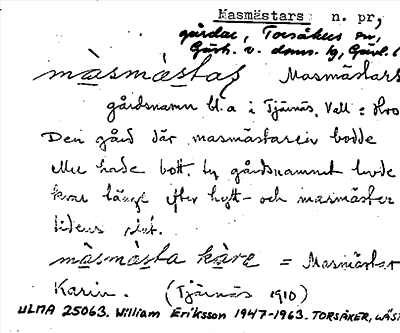 Masmästars n. pr,
gårdar, Torsåkers sn,
Gästr. v. doms. bg, Gävl. l
màsmàstas Masmästars
gårdsnamn bl.a i Tjärnäs, Vall =
Den gård där masmästaren bodde
eller hade bott, ty gårdsnamnet levde
kvar långt efter hytt- och masmäster
tidens slut.
màsmàsta kàre = Masmästar
Karin. (Tjärnäs 1910)
ULMA 25063. William Eriksson 1947-1963. TORSÅKER, GÄS